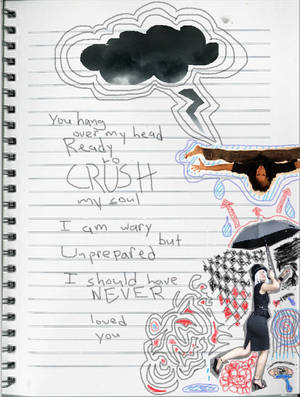 You hang
over my head
Ready
to
CRUSH
my soul
I am wary
but
Unprepared
I should have
NEVER
loved
you